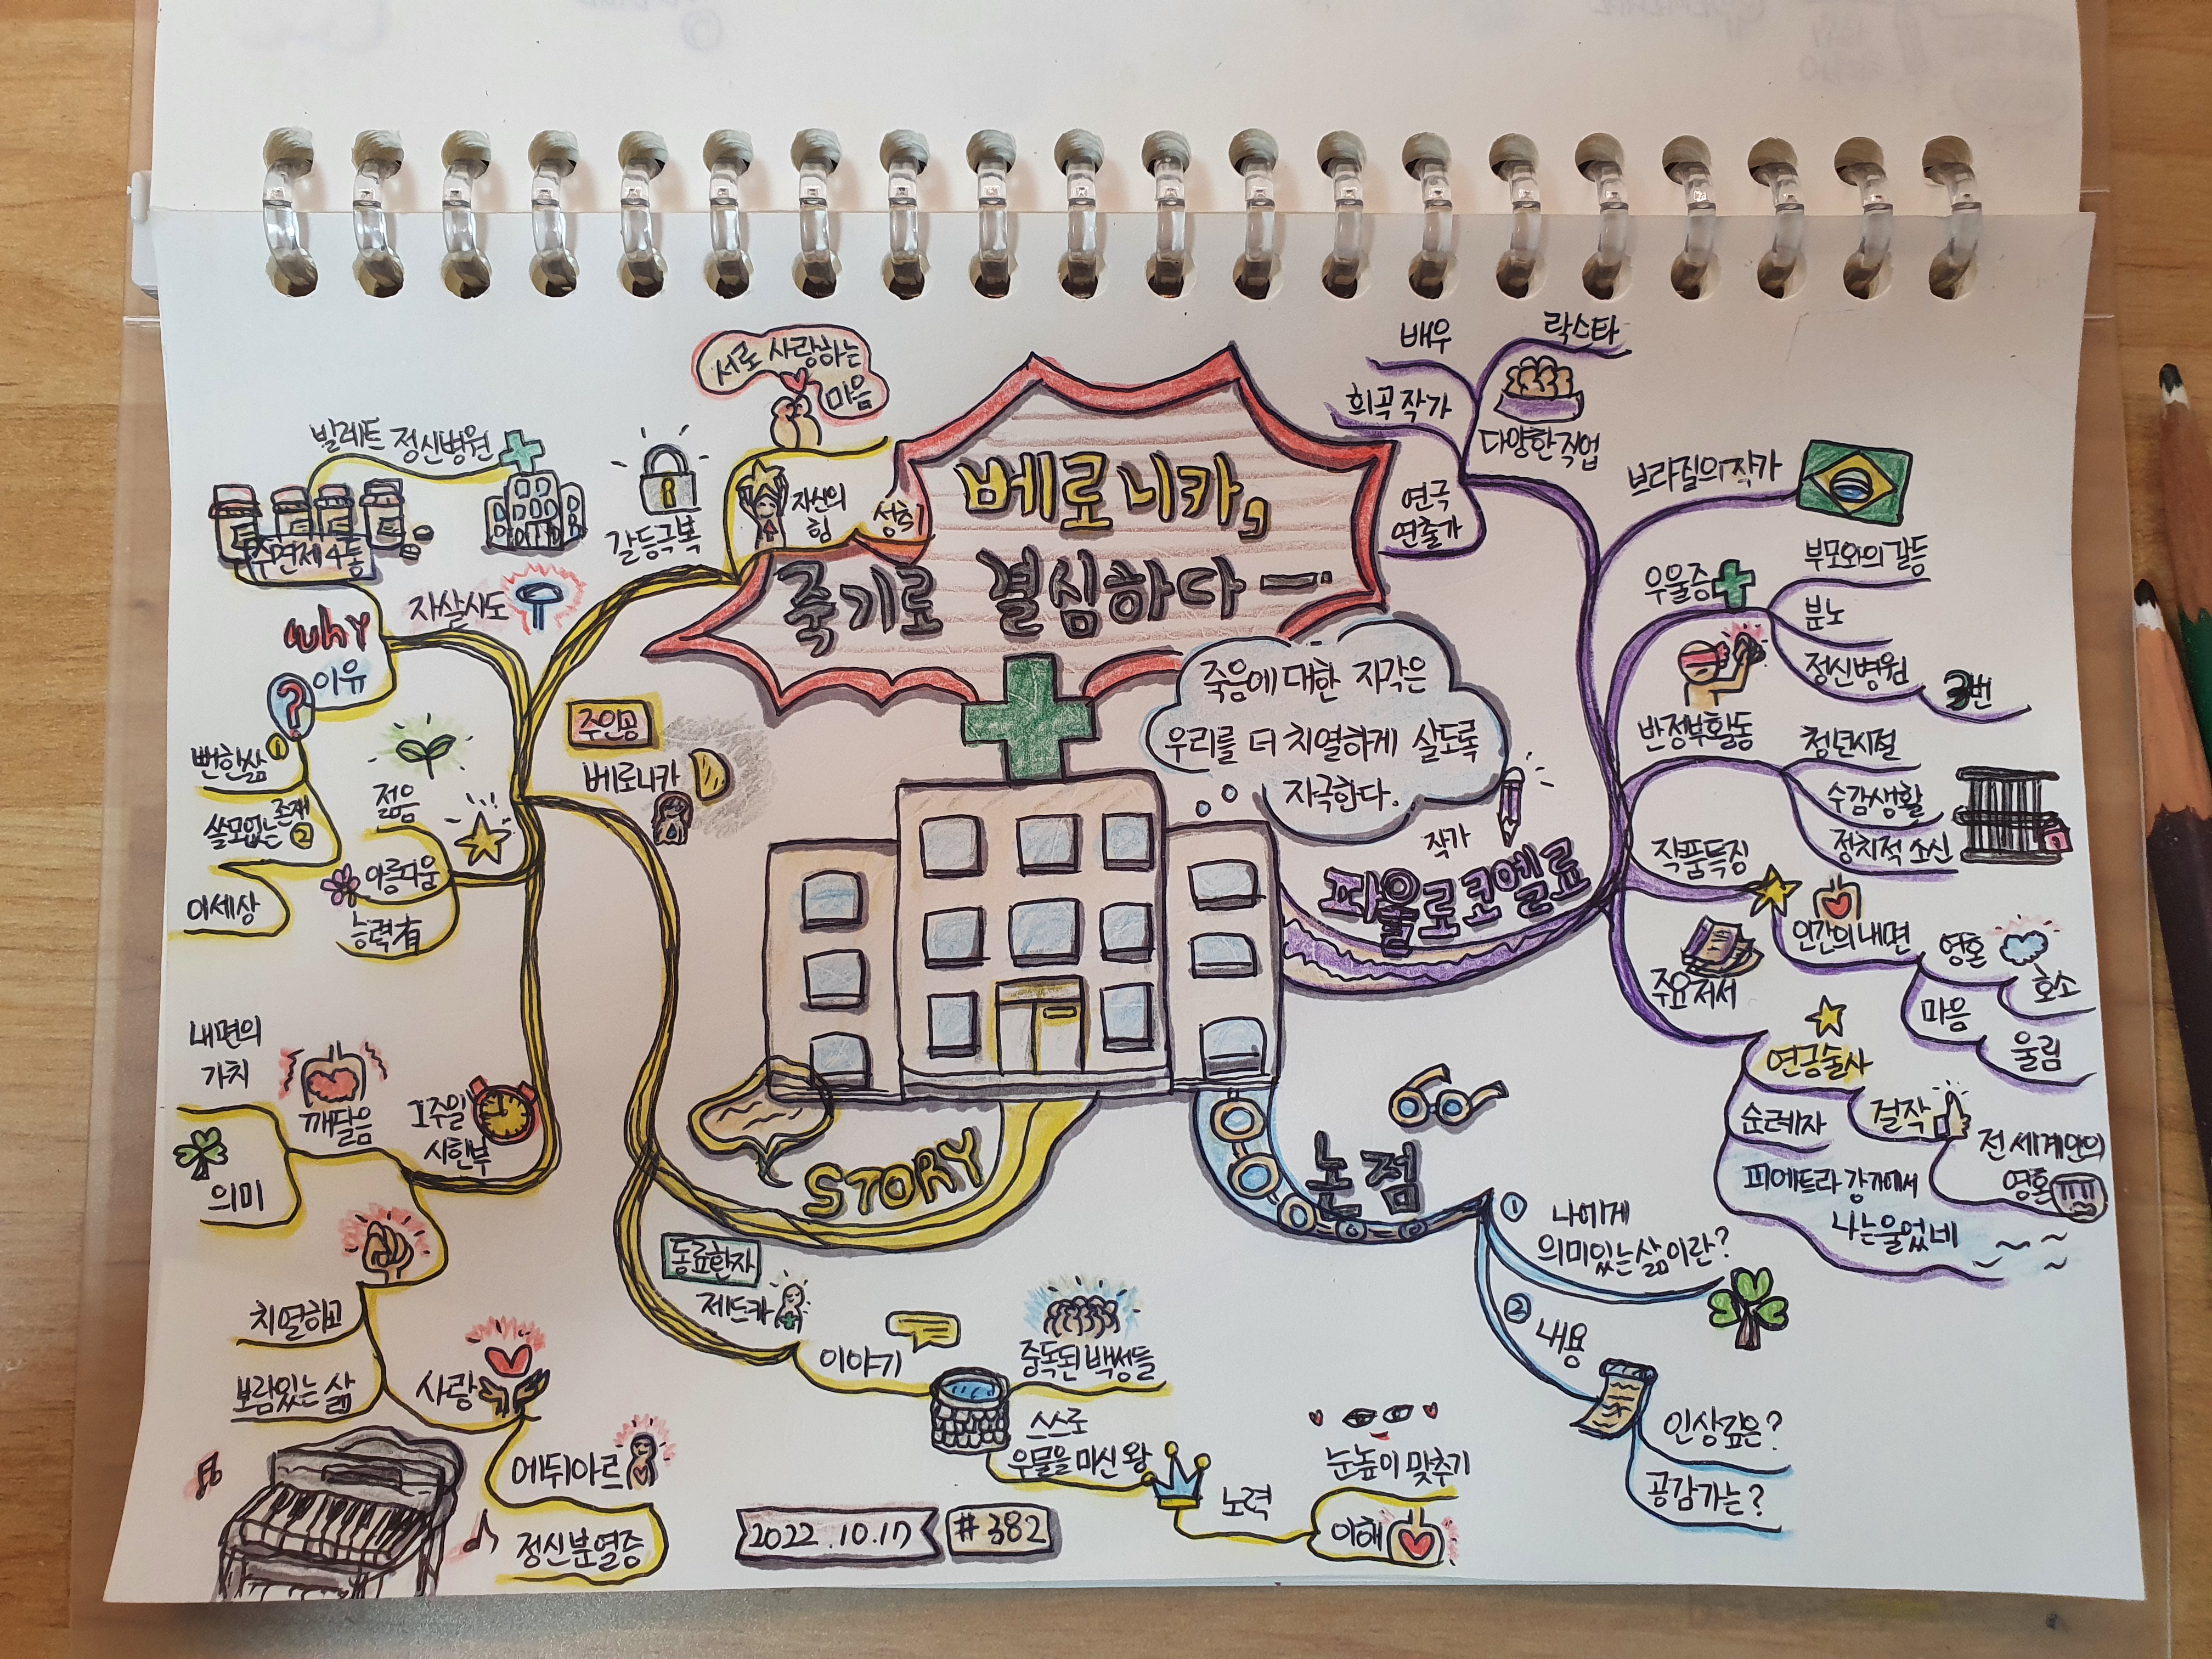 베로니카,
죽기로 결심하다
죽음에 대한 자각은
우리를 더 치열하게 살도록
자극한다.
작가
파울로코엘료
다양한직업
락스타
배우
희곡작가
연극
연출가
브라질의작가
우울증
부모와의갈등
분노
정신병원
3번
반정부활동
청년시절
수감생활
정치적 소신
작품특징
인간의내면
영혼
호소
마음
울림
주요저서
연금술사
걸작
전세계인의
영혼
순례자
피에트라 강가에서
나는울었네
논점
① 나에게
의미있는삶이란?
② 내용
인상깊은?
공감가는?
STORY
주인공
베로니카
젊음
아름다움
능력有
자살시도
why
이유
수면제4통
발레트 정신병원
뻔한삶 ①
쓸모없는존재 ②
이세상
갈등극복
자신의
힘
성취
서로 사랑하는
마음
1주일
시한부
깨달음
내면의
가치
의미
치열하고
보람있는 삶
사랑
에뒤아르
정신분열증
동료환자
제드카
이야기
중독된 백성들
스스로
우물을마신 왕
노력
눈높이 맞추기
이해
2022.10.17
#382